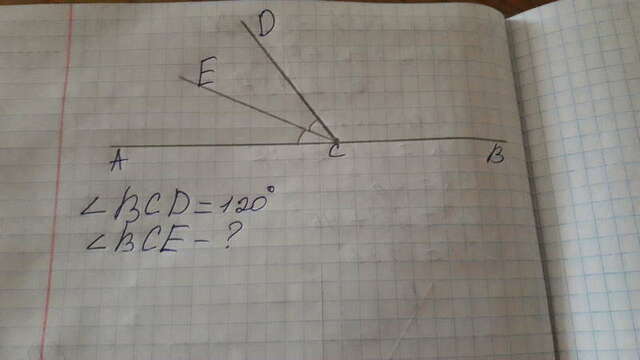 D
E
A
C
B
∠BCD=120°
∠BCE-?